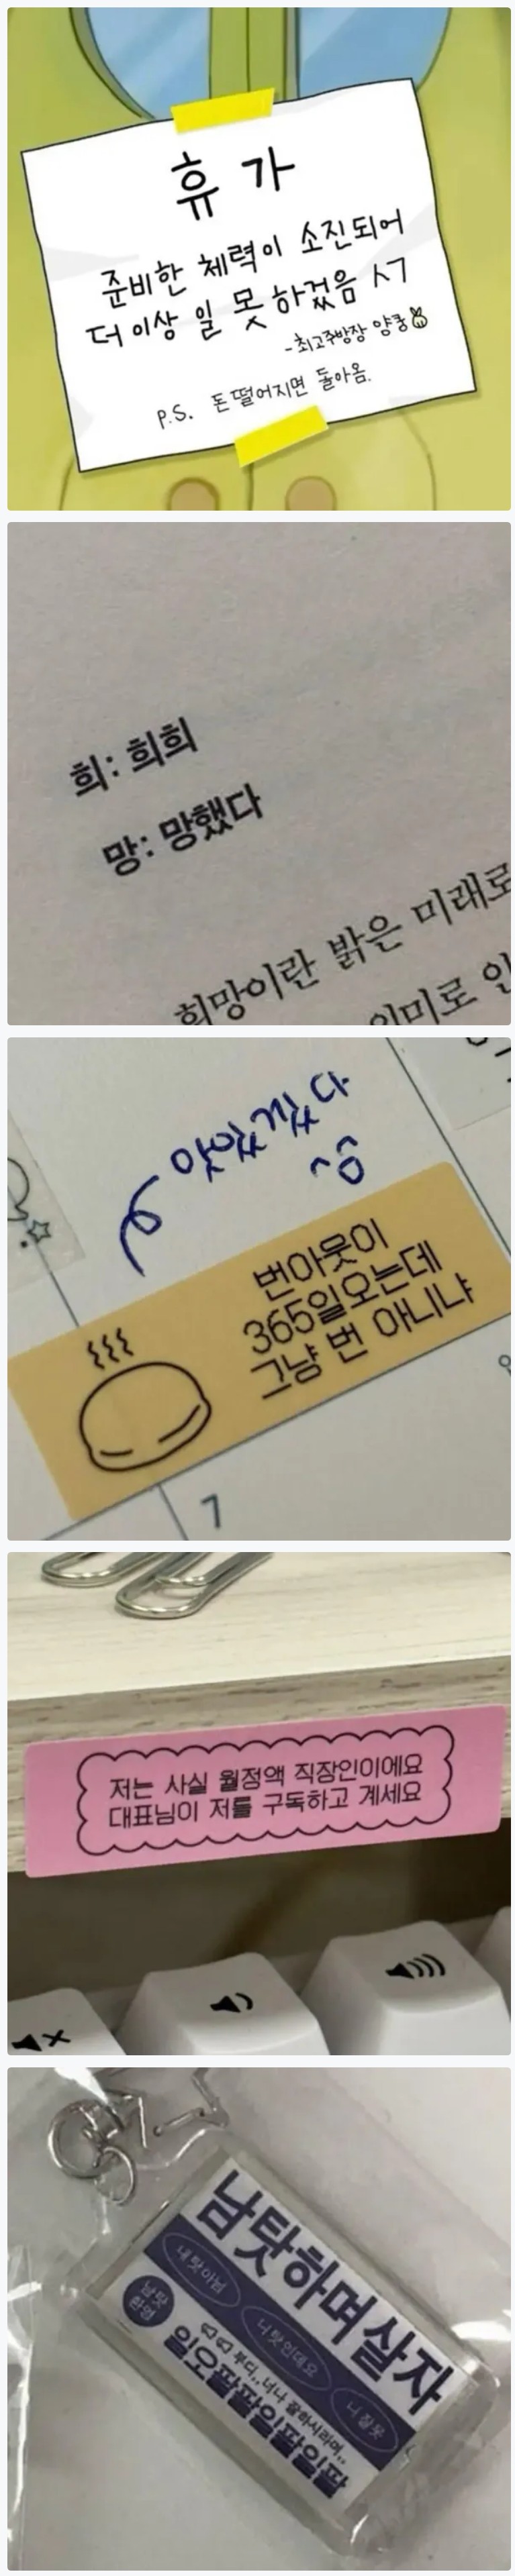 휴가
준비한 체력이 소진되어
더 이상 일 못 하겠음 ㅅㄱ
-최고주방장 양쿵
P.S. 돈 떨어지면 돌아옴.
희: 희희
망: 망했다
희망이란 밝은 미래로
의미로 인
번아웃이
365일오는데
그냥 번 아니냐
7
저는 사실 월정액 직장인이에요
대표님이 저를 구독하고 계세요
남탓하며살자
내 탓아님
니탓인데요
니 잘못
남탓
환영
부디..너나 잘하시라며..
일오팔팔일팔일팔